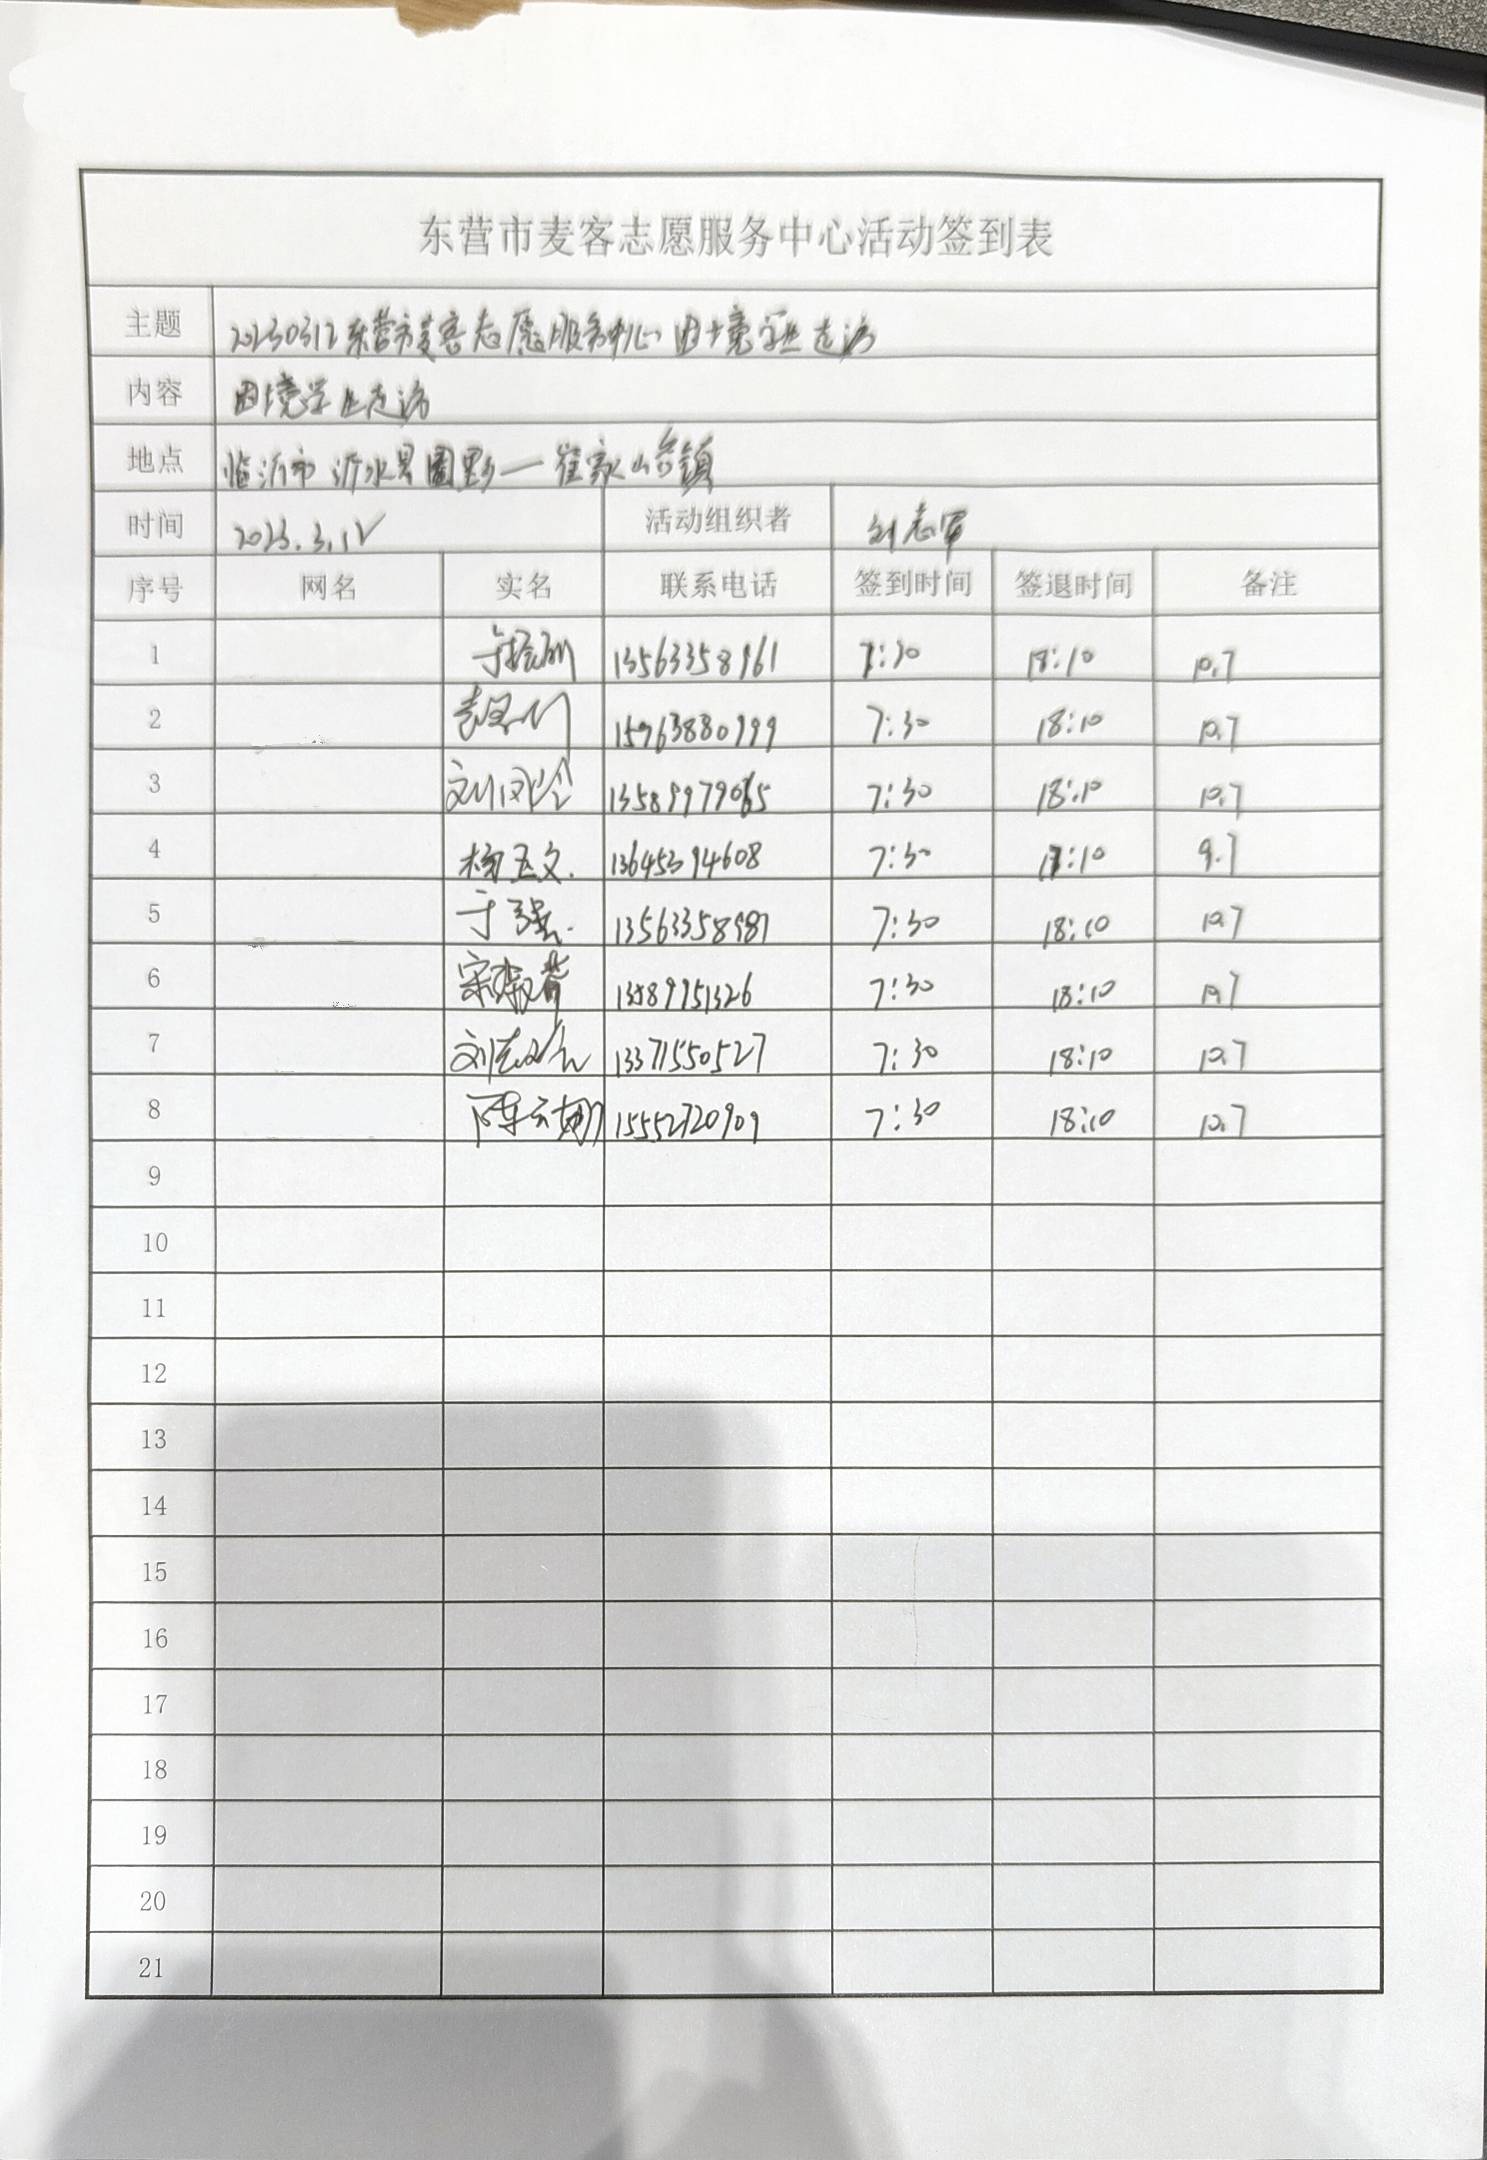 东营市麦客志愿服务中心活动签到表
主题 20230312东营市麦客志愿服务中心困境学生走访
内容 困境学生走访
地点 临沂市沂水县圈里乡—崔家峪镇
时间 2023.3.12 活动组织者 刘志军
序号 网名 实名 联系电话 签到时间 签退时间 备注
1 13563358961 7:30 18:10 10.7
2 15963880999 7:30 18:10 10.7
3 刘凤玲 13589979065 7:30 18:10 10.7
4 杨玉文. 13645394608 7:30 17:10 9.7
5 于强. 13563358987 7:30 18:10 10.7
6 宋淑菁 13589951326 7:30 18:10 10.7
7 13371550527 7:30 18:10 10.7
8 15552720909 7:30 18:10 10.7
9
10
11
12
13
14
15
16
17
18
19
20
21